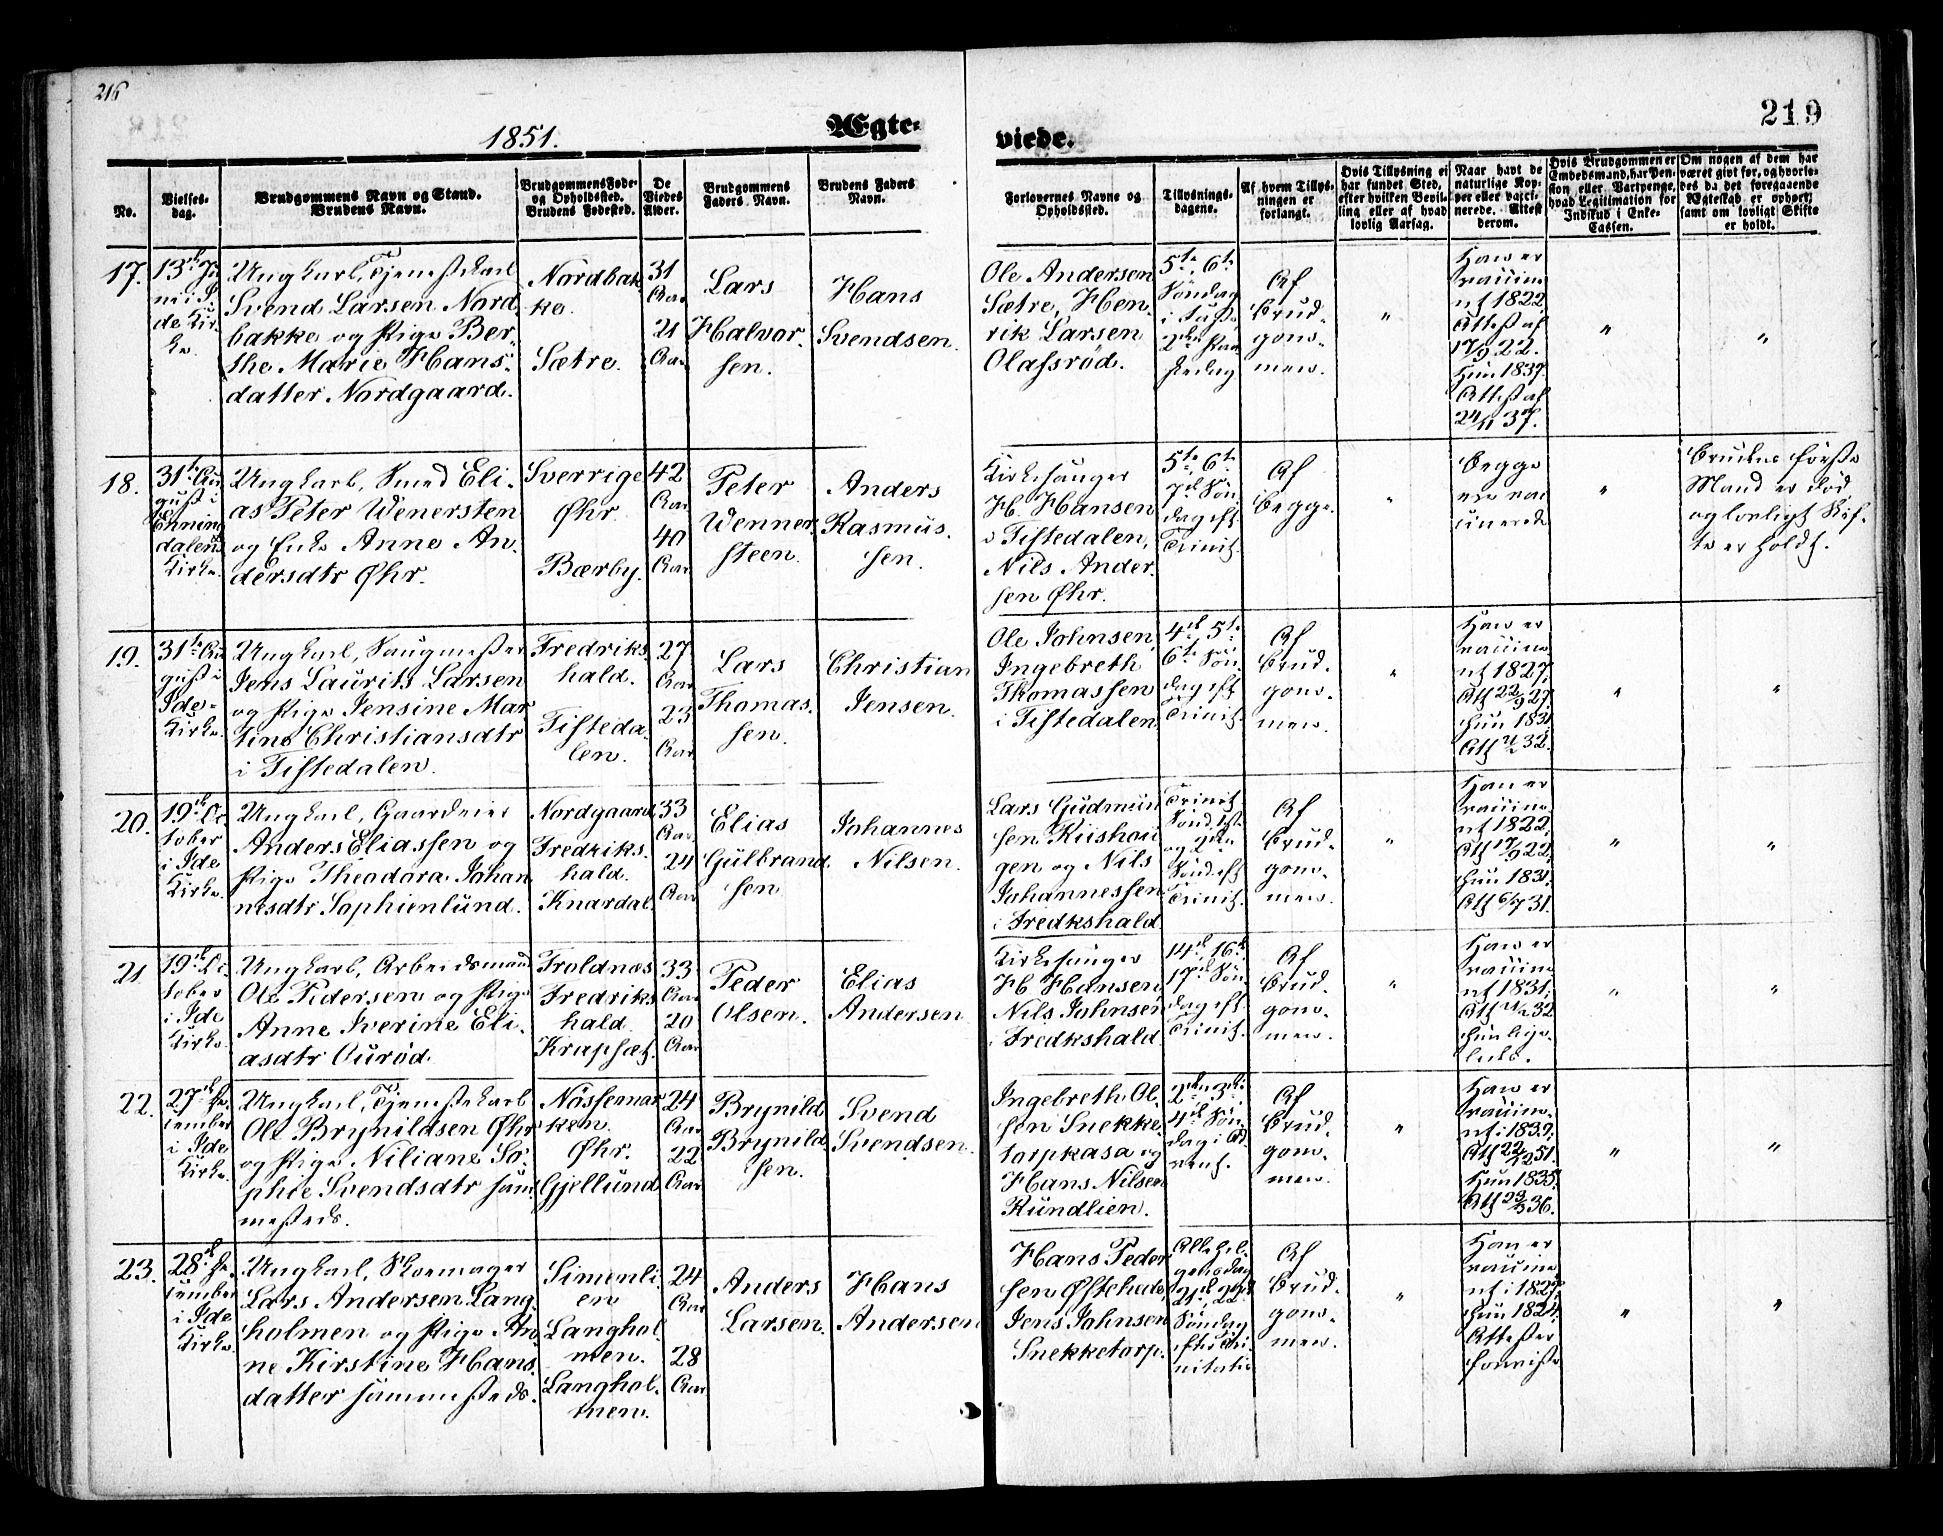 216
219
1851.
Ægte-
viede.
No.
Vielses-
dag.
Brudgommens Navn og Stand.
Brudens Navn.
Brudgommens Føde-
og Opholdssted.
Brudens Fødested.
De
Viedes
Alder.
Brudgommens
Faders Navn.
Brudens Faders
Navn.
Forlovernes Navne og
Opholdssted.
Tillysnings-
dagene.
Af hvem Tillys-
ningen er
forlangt.
Hvis Tillysning ei
har fundet Sted,
efter hvilken Bevil-
ling eller af hvad
lovlig Aarsag.
Naar havt de
naturlige Kop-
per eller vacci-
nerede. Attest
derom.
Hvis Brudgommen er
Embedsmand, har Pen-
sion eller Vartpenge,
hvad Legitimation for
Indskud i Enke-
Cassen.
Om nogen af dem har
været givt for, og hvorle-
des da det foregaaende
Ægteskab er ophørt,
samt om lovligt Skifte
er holdt.
17.
13de Ju
ni i I-
de Kir-
ke.
Ungkarl, Tjenestekarl
Svend Larsen Nord
bakke og Pige Ber-
the Marie Hans-
datter Nordgaard.
Nordbak-
ke.
Sætre.
31
Aar
21
Aar
Lars
Halvor-
sen.
Hans
Svendsen.
Ole Andersen
Sætre, Hen-
rik Larsen
Olafsrød.
5te, 6te
Søndag
i Faste,
2den Paa
skedag
Af
Brud-
gom-
men.
"
Han er
vaccine
ret 1822,
Attest af
17/9 22.
Hun 1837.
Attest af
24/11 37.
"
"
18.
31te Au
gust i
Enning
dalens
Kirke.
Ungkarl, Smed Eli-
as Peter Wenersten
og Enke Anne An-
dersdtr Øhr.
Sverrige
Øhr.
Bærby.
42
Aar
40
Aar
Peter
Wenner-
steen.
Anders
Rasmus-
sen.
Kirkesanger
H. Hansen
i Tistedalen,
Nils Ander-
sen Øhr.
5te, 6te
7de Søn
dag eft
Trinit.
Af
Begge.
"
Begge
ere vac
cinerede
"
Brudens første
Mand er død,
og lovligt Skif-
te er holdt.
19.
31te Au
gust i
Ide-
Kirke.
Ungkarl, Saugmester
Jens Laurits Larsen
og Pige Jensine Mar
tine Christiansdtr
i Tistedalen.
Fredriks
hald.
Tisteda-
len.
27
Aar
23
Aar
Lars
Thomas-
sen.
Christian
Jensen.
Ole Johnsen,
Ingebreth
Thomassen
i Tistedalen.
4de, 5te
6te Søn
dag eft
Trinit.
Af
Brud-
gom-
men.
"
Han er
vaccine
ret 1827,
Att 22/9 27.
Hun 1831
"
"
20.
19de Oc
tober
i Ide
Kirke.
Ungkarl, Gaardeier
Anders Eliassen og
Pige Theodora Johan
nesdtr Sophienlund.
Nordgaard,
Fredriks-
hald.
Knardal.
33
Aar
24
Aar
Elias
Gulbrand
sen
Johannes
Nilsen.
Lars Gudmun
sen Kiishau
gen og Nils
Johannessen
i Fredkshald.
Trinit.
Sønd, 1st
og 2den
Sønd eft
Trinit.
Af
Brud-
gom-
men.
"
Han er
vaccine
ret 1822,
Att 17/9 22,
Hun 1831.
Att 6/7 31.
"
"
21
19de Oc
tober
i Ide
Kirke.
Ungkarl, Arbeidsmand
Ole Pedersen og Pige
Anne Iverine Eli-
asdtr Aurød.
Troldnæs
Fredriks
hald.
Krapsæt.
33
Aar
20
Aar
Peder
Olsen.
Elias
Andersen
Kirkesanger
H. Hansen,
Nils Johnsen
i Fredkshald
14de, 16de
17de Søn
dag eft
Trinit.
Af
Brud-
gom-
men.
"
Han er
vaccine
ret 1831,
Hun lige-
ledes.
"
"
22.
27de De-
cember
i Ide
Kirke.
Ungkarl, Tjenestekarl
Ole Brynildsen Øhr
og Pige Niliane So-
phie Svendsdtr sam
mesteds.
Nössemar
ken.
Øhr.
Gjellund
24
Aar
22
Aar
Brynild
Brynild-
sen.
Svend
Svendsen.
Ingebreth Ol-
sen Snekke-
torpkasa og
Hans Nilsen
Kundlien.
2den, 3die
4de Søn
dag i Ad
vent.
Af
Brud-
gom-
men.
"
Han er
vaccine-
ret i 1839,
Att 22/12 51.
Hun 1835,
"
"
23.
28de De-
cember
i Ide
Kirke.
Ungkarl, Skomager
Lars Andersen Lang-
holmen og Pige An
ne Kirstine Hans
datter sammesteds.
Simenli-
en
Langhol-
men.
Langhol-
men.
24
Aar
28
Aar
Anders
Larsen.
Hans
Andersen
Hans Peder
sen Østehede,
Jens Johnsen
Snekketorp.
Allehel-
gensdag
21de, 22de
Søndag
eft Tri-
nitatis
Af
Brud-
gom-
men.
"
Han er
vaccine
ret i 1827,
Hun 1824.
Attester
foreviste
"
"